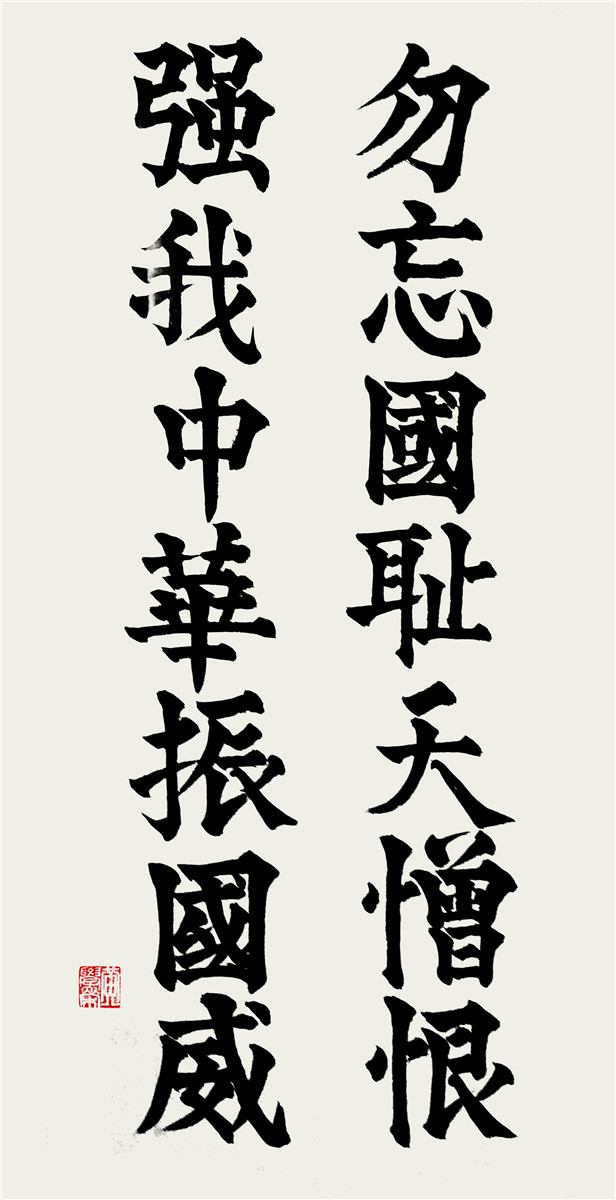 勿忘國耻天憎恨
强我中華振國威